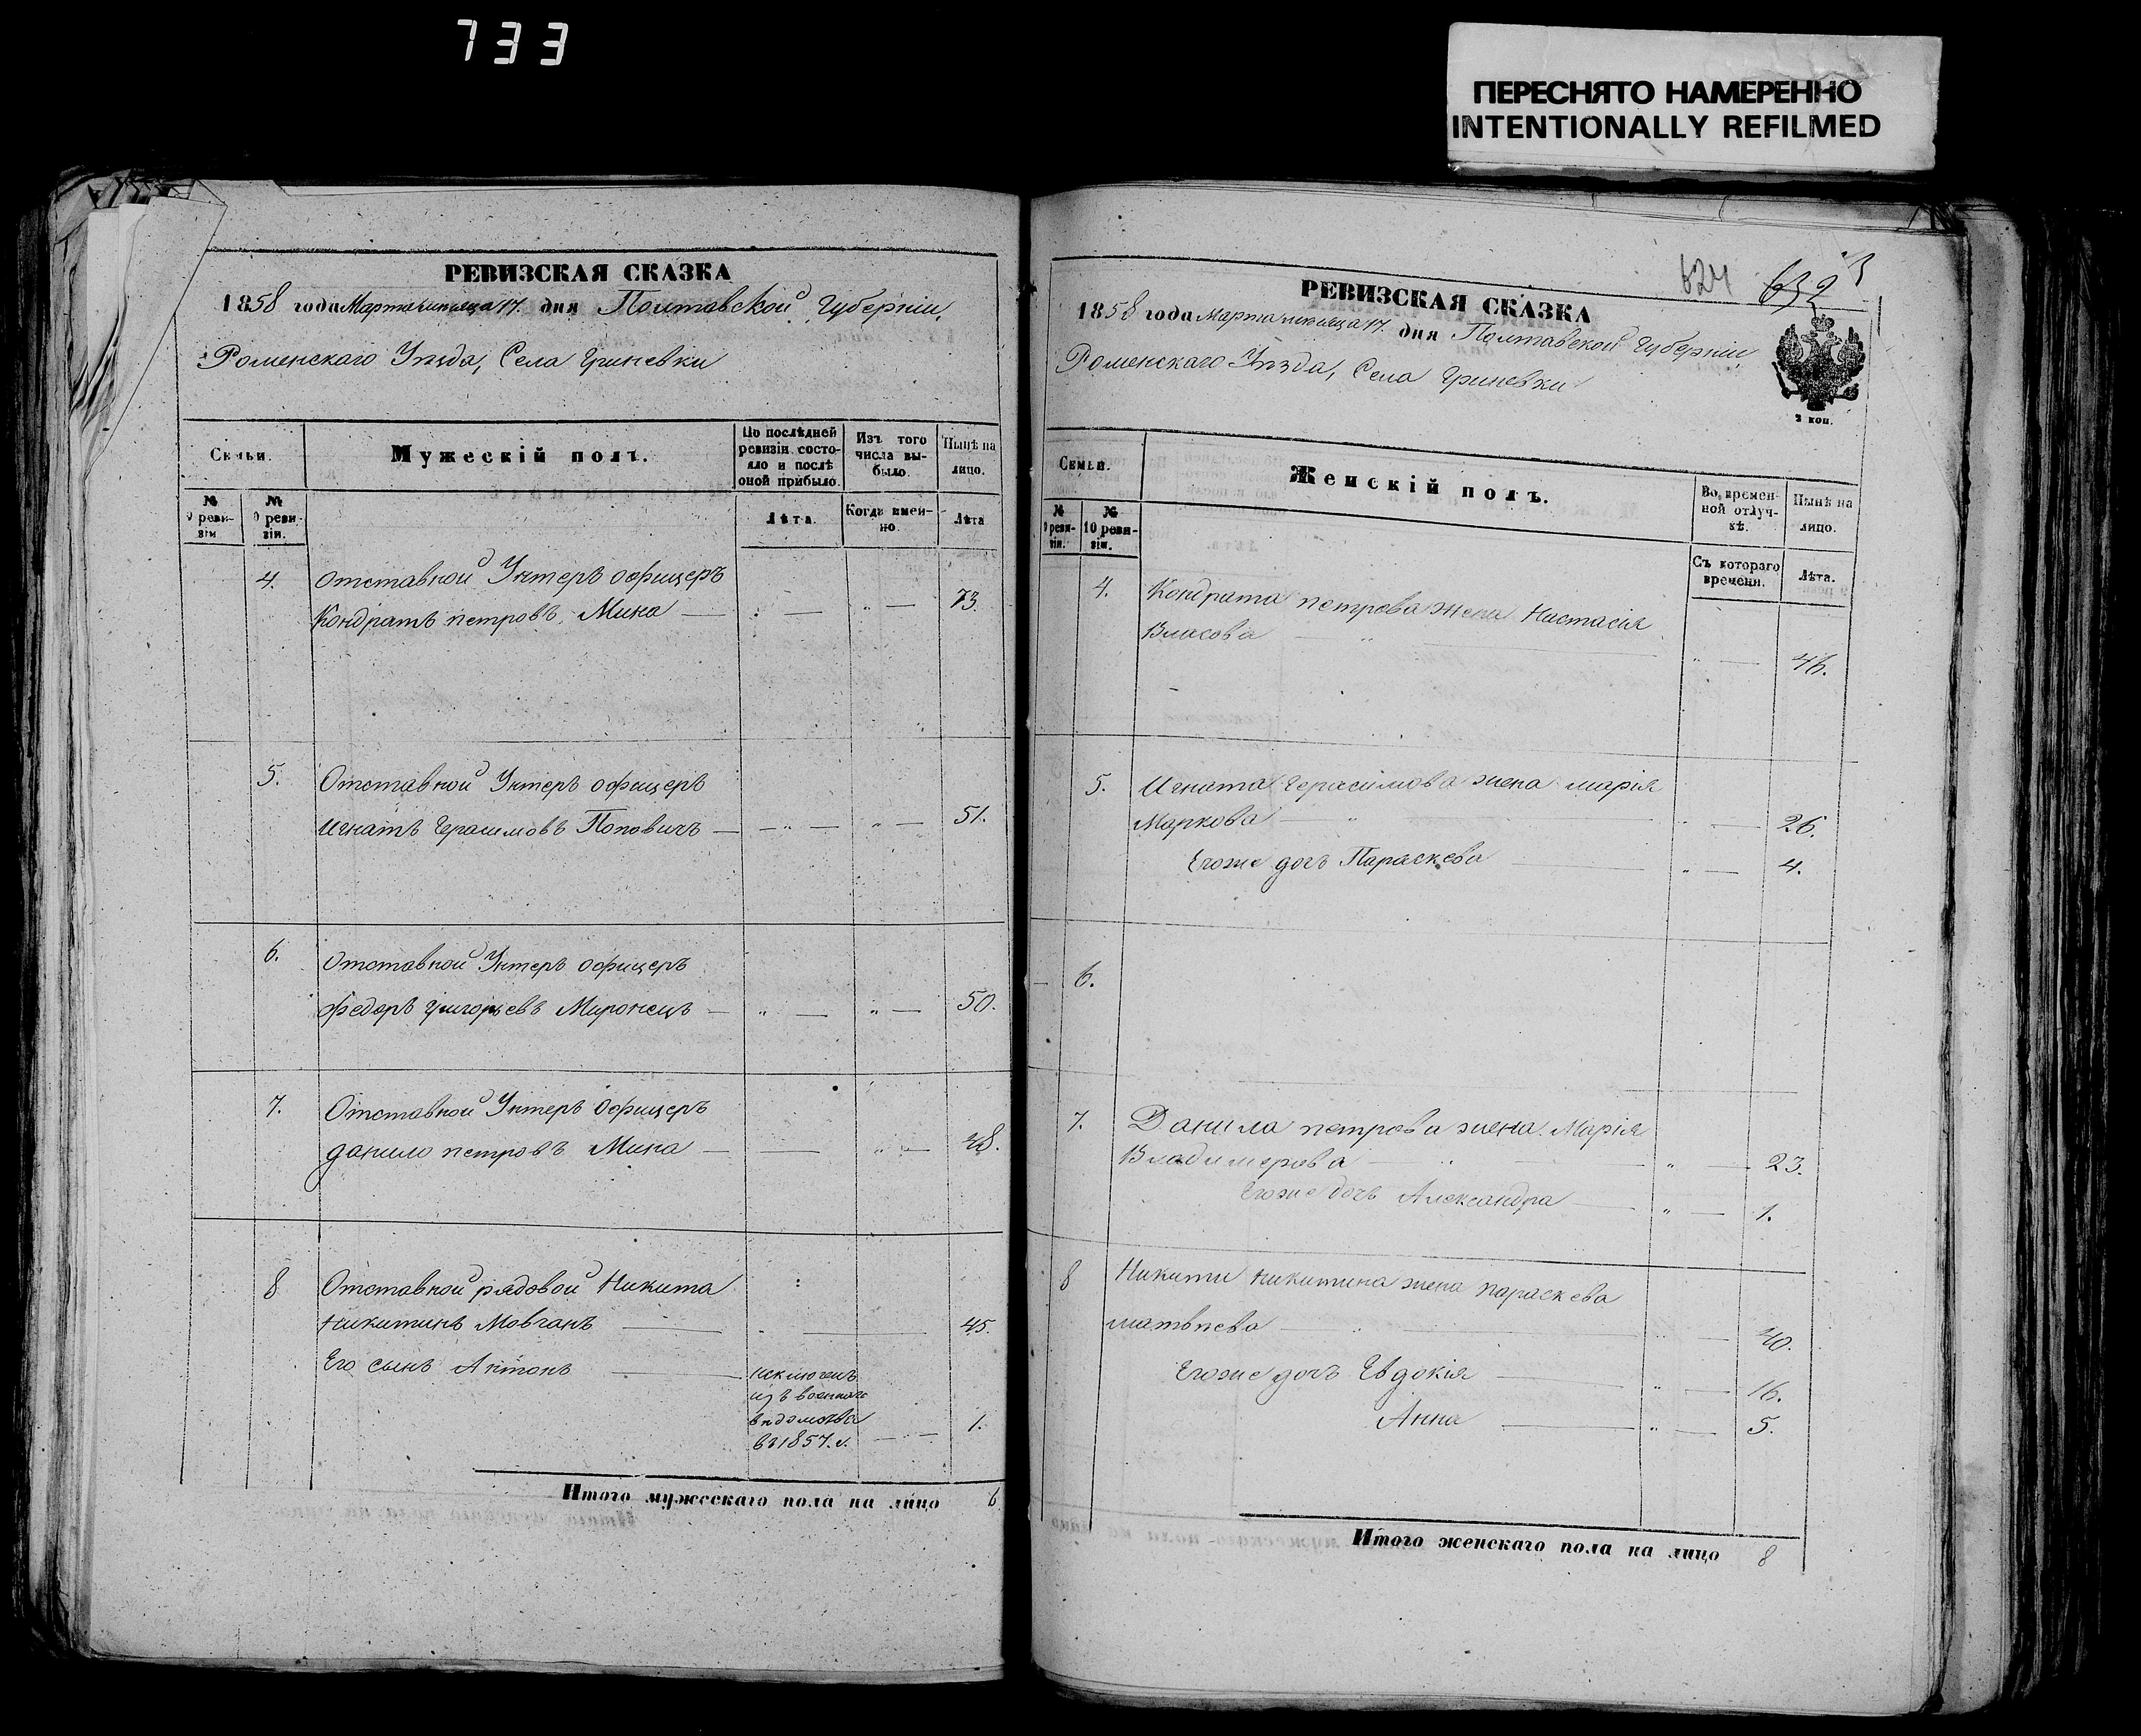 733
ПЕРЕСНЯТО НАМЕРЕННО
INTENTIONALLY REFILMED
РЕВИЗСКАЯ СКАЗКА
1858 года Марта месяца 17. дня Полтавской Губерніи,
Роменскаго Уѣзда, Села Гриневки
Семьи.
Мужескій полъ.
По послѣдней
ревизіи состо-
яло и послѣ
оной прибыло.
Изъ того
числа вы-
было.
Нынѣ на
лицо.
№
9 реви-
зіи
№
10 реви-
зіи.
Лѣта.
Когда имен-
но.
Лѣта
4. Отставной Унтеръ офицеръ
Кондратъ петровъ Мина 73.
5. Отставной Унтеръ офицеръ
Игнатъ Герасимовъ Поповичъ 51.
6. Отставной Унтеръ офицеръ
Федоръ Григорьевъ Миронецъ 50.
7. Отставной Унтеръ Офицеръ
данило петровъ Мина 48.
8 Отставной рядовой Никита
Никитинъ Мовчанъ 45.
Его сынъ Антонъ
исключенъ
изъ военнаго
вѣдомства
въ 1857. г. 1.
Итого мужескаго пола на лицо 6.
624 632 3
РЕВИЗСКАЯ СКАЗКА
1858 года Марта месяца 17. дня Полтавской Губерніи
Роменскаго Уѣзда, Села Гриневки
2 коп.
Семьи.
Женскій полъ.
Во времен-
ной отлуч-
кѣ.
Нынѣ на
лицо.
№
9 реви-
зіи.
№
10 реви-
зіи.
Съ котораго
времени.
Лѣта.
4. Кондрата петрова жена Настасія
Власова 46.
5. Игната Герасимова жена марія
Маркова 26.
Егоже дочь Параскева 4.
6.
7. Данила петрова жена Марія
Владимерова 23.
Егоже дочь Александра 1.
8 Никиты Никитина жена параскева
матвѣева 40.
Егоже дочь Евдокія 16.
Анна 5.
Итого женскаго пола на лицо 8